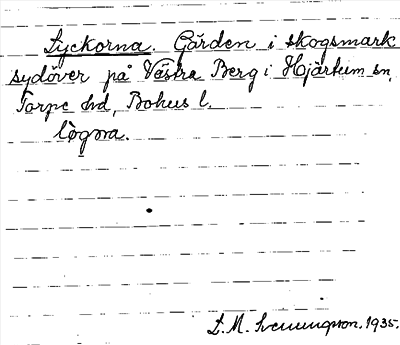 Lyckorna. Gården i skogsmark
sydöver på Västra Berg i Hjärtum sn,
Torpe hd, Bohus l.
lø̀gɷna.
S. M. Svenungsson. 1935.